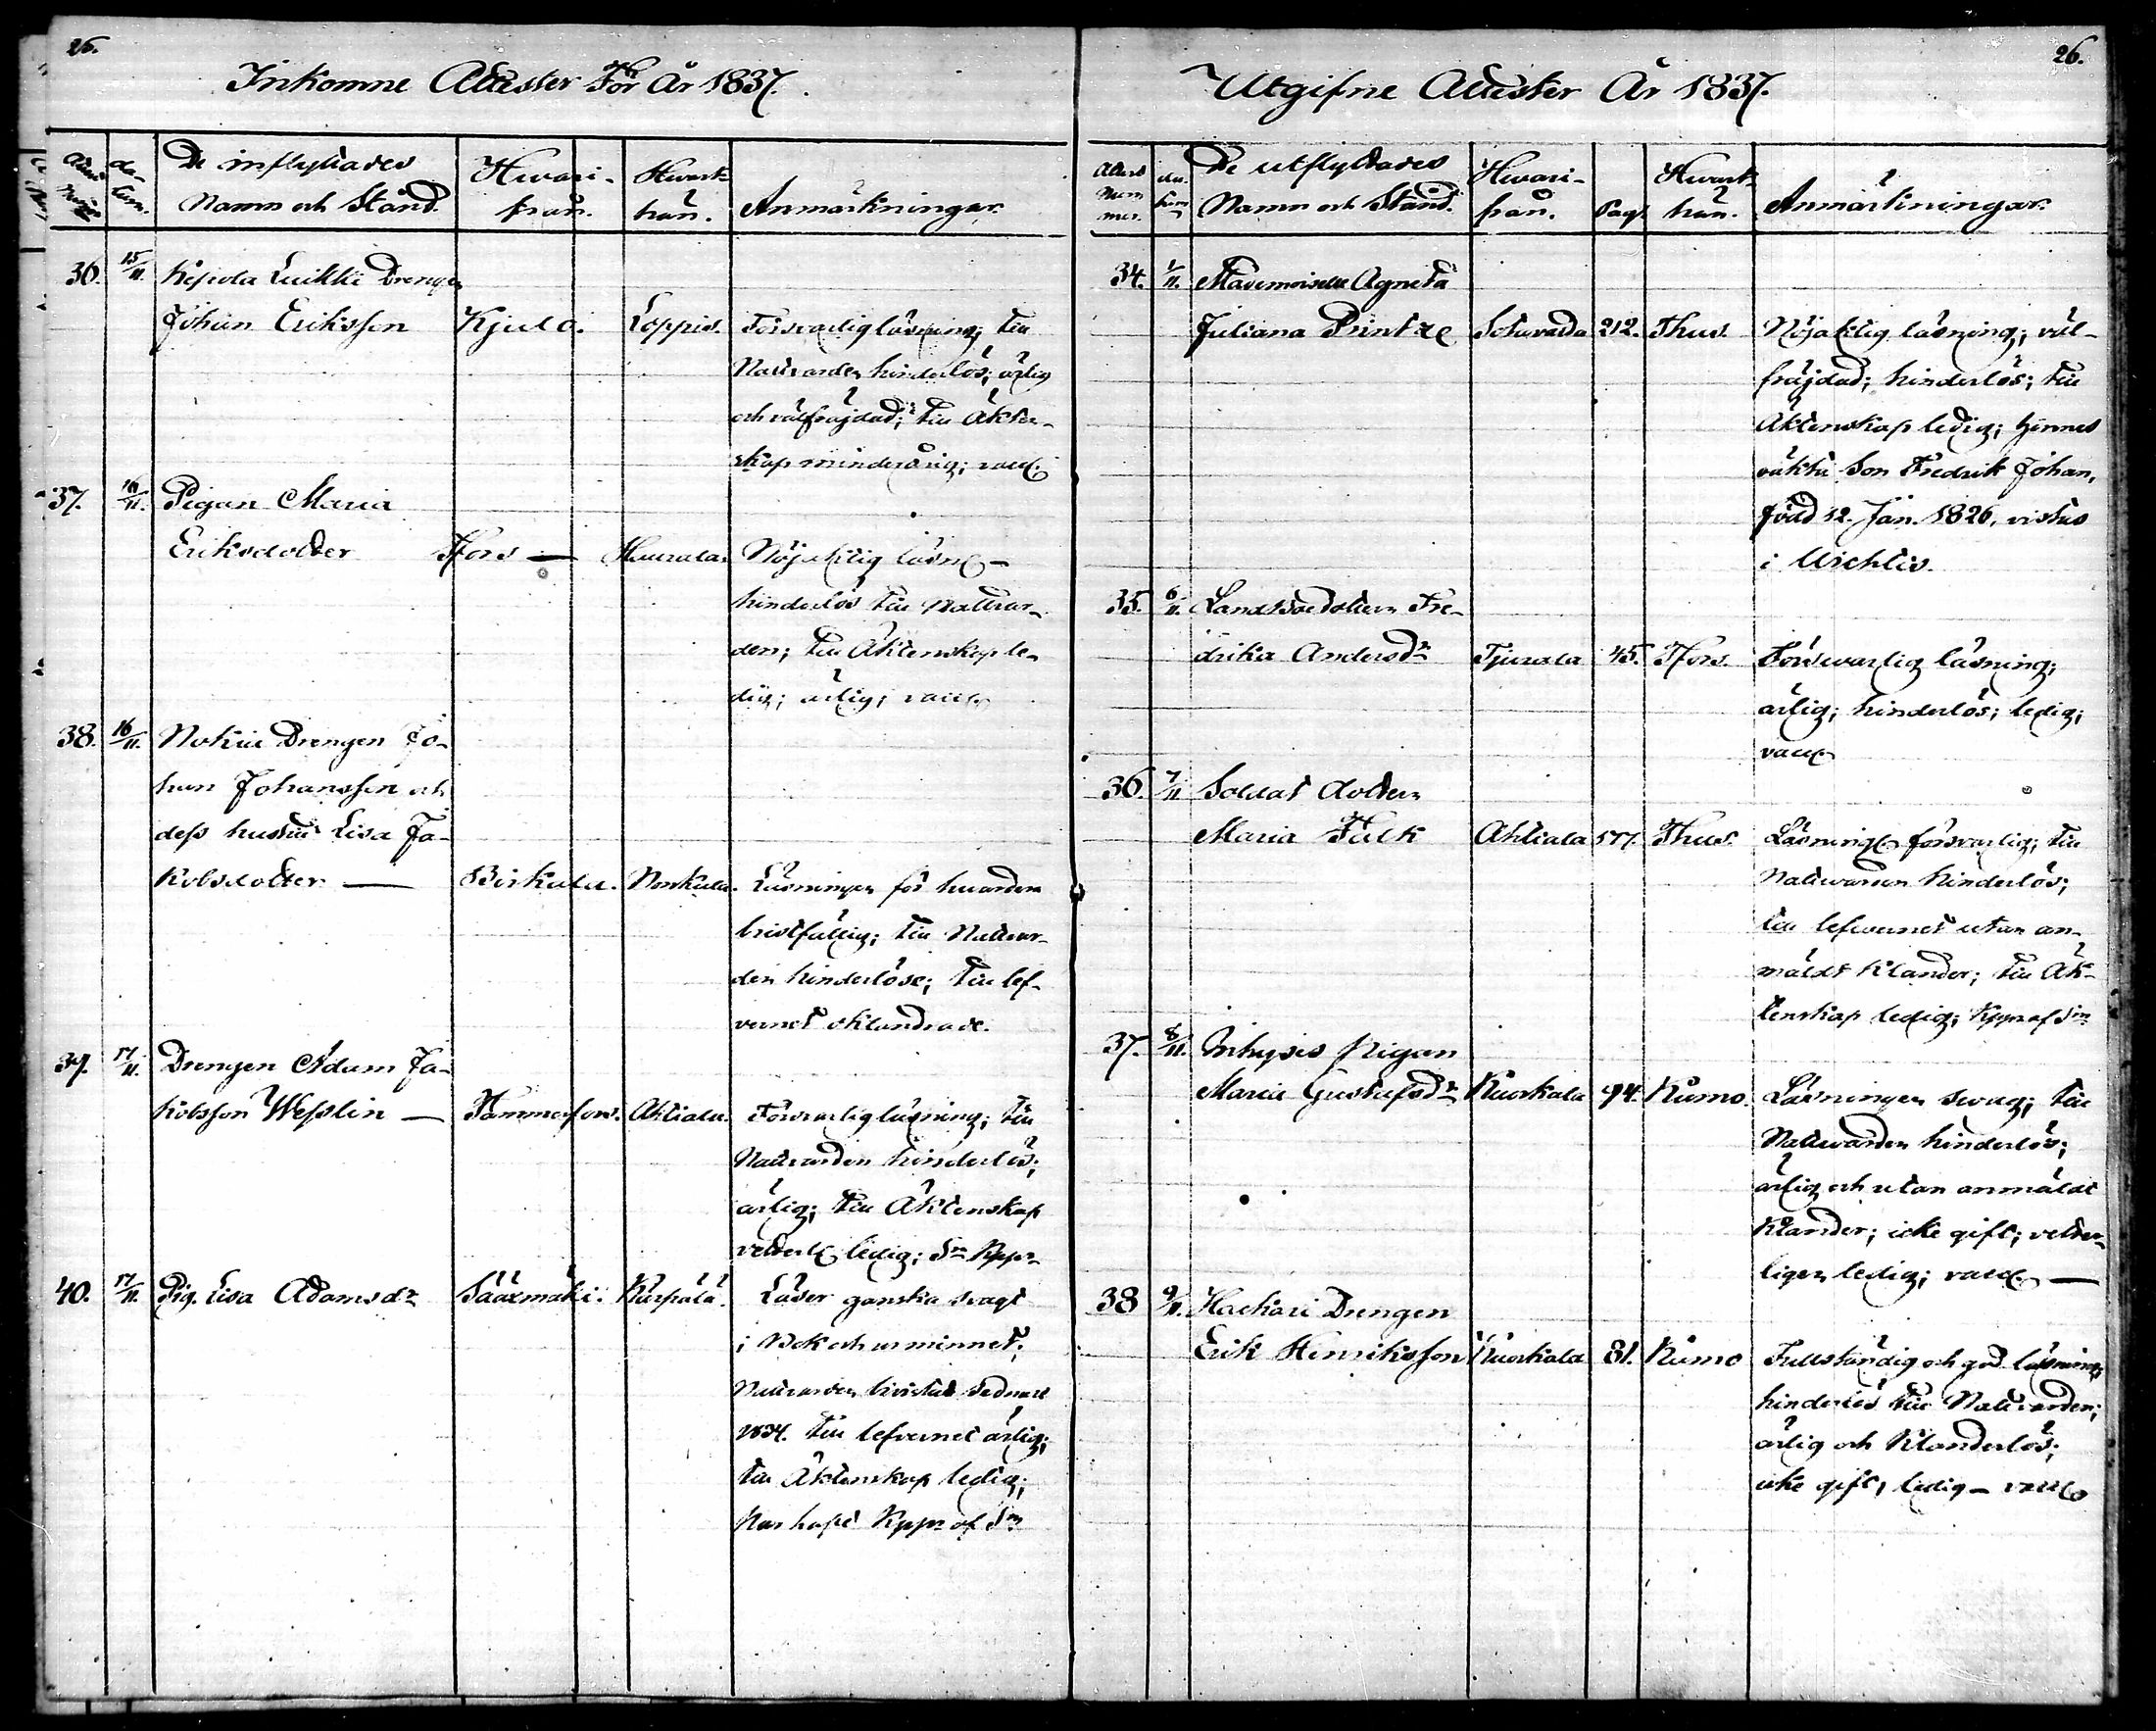 26.
Inkomne Attester För År 1837.
Attest Numer
da-
tum.
De inflyttades
Namn och Stånd.
Hwari-
från.
Hwart-
hän.
Anmärkningar.
36. 15/11. Drengen
Johan Eriksson Kjulo. Loppis. Försvarlig läsning; till
Nattvarden hinderlös; ärlig
och välfräjdad; till Äkten-
skap minderårig; vacc.
37. 16/11. Pigan Maria
Eriksdotter Tfors — Nöjaktig läsn. –
hinderlös till Nattvar-
den; till Äktenskap le-
dig; ärlig; vacc.
38. 16/11. Nokia Drengen Jo-
han Johansson och
dess hustru Lisa Ja-
kobsdotter — Birkala. Läsningen för hvardera
bristfällig; till Nattvar-
den hinderlöse; till lef-
vernet oklandrade.
39. 17/11. Drengen Adam Ja-
kobsson Wesslin — Tammerfors. Ahtiala. Försvarlig läsning; till
Nattvarden hinderlös;
ärlig; till Äktenskap
veterl. ledig; Sm Kppr
40. 17/11. Pig. Lisa Adamsdr Sääxmäki. Karpala. Läser ganska svagt
i Bok och ur minnet;
Nattvarden bivistad sednast
1834. till lefvernet ärlig;
till Äktenskap ledig;
Har haft Kppr af Sm
26.
Utgifne Attester År 1837.
Attest
Num
mer.
da-
tum
De utflyttades
Namn och Stånd.
Hwari-
från.
Pag.
Hwart-
hän.
Anmärkningar.
34. 1/11. Mademoiselle Agneta
Juliana Printze 212. Thus. Nöjaktig läsning; väl-
fräjdad; hinderlös; till
Äktenskap ledig; hennes
oäkta Son Fredrik Johan,
född 12. Jan. 1826, vistas
i Wichtis.
35. 6/11. Fre-
drika Andersdr Tjurala 45. Tfors. Försvarlig läsning;
ärlig; hinderlös; ledig;
vacc.
36. 7/11 Soldat dottern
Maria Falk Ahtiala 577. Thus. Läsning försvarlig; till
Nattvarden hinderlös;
till lefvernet utan an-
mäldt klander; till Äk-
tenskap ledig; Kppr af Sm
37. 8/11. Inhyses Pigan
Maria Gustafsdr Kuorkala 94. Kumo. Läsningen svag; till
Nattvarden hinderlös;
ärlig och utan anmäldt
klander; icke gift; veter-
ligen ledig; vacc. —
38 9/11. Hackari Drengen
Erik Henriksson Kuorkala 81. Kumo Fullständig och god läsning;
hinderlös till Nattvarden;
ärlig och klanderlös;
icke gift, ledig – vacc.